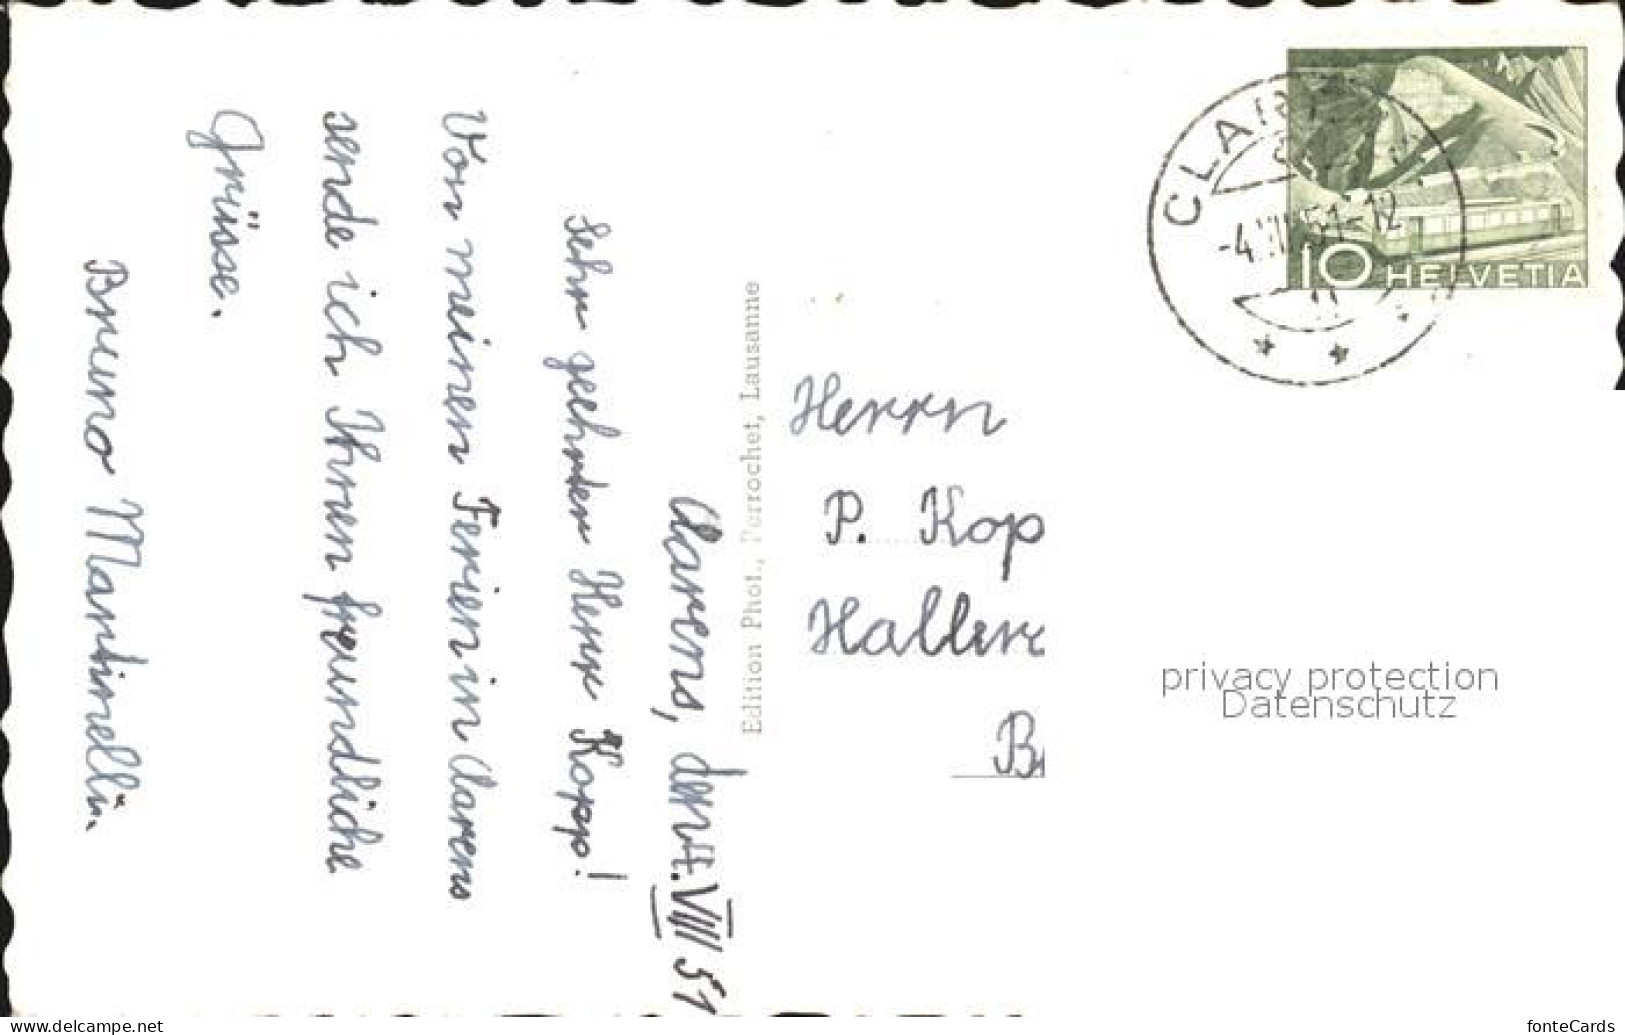 Clarens, den 4. VIII 51
Sehr geehrter Herr Kopp!
Von meinen Ferien in Clarens
sende ich Ihnen freundliche
Grüsse.
Bruno Mantinelli.
Edition Phot., Perrochet, Lausanne
Herrn
P. Kop
Haller
B
CLAR
-4.VIII.51-12
10 HELVETIA
privacy protection
Datenschutz
www.delcampe.net
fonteCards